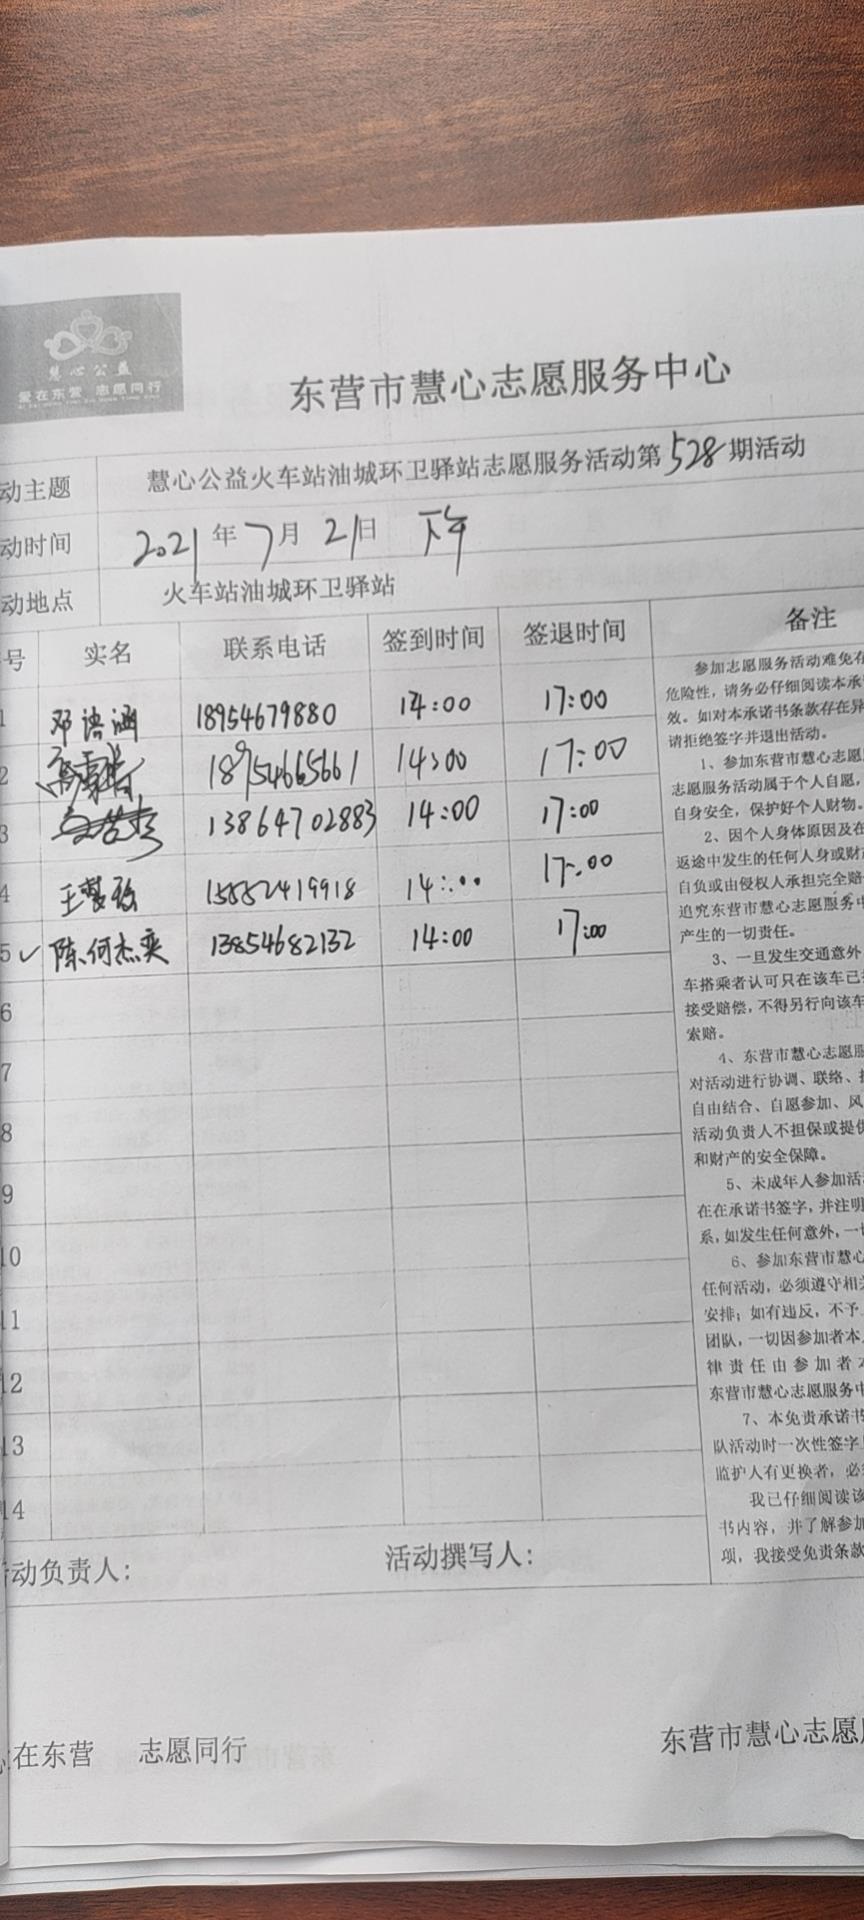 慧心公益
爱在东营 志愿同行
东营市慧心志愿服务中心
动主题 慧心公益火车站油城环卫驿站志愿服务活动第528期活动
动时间 2021年7月21日 下午
动地点 火车站油城环卫驿站
号 实名 联系电话 签到时间 签退时间 备注
1 邓语涵 18954679880 14:00 17:00
2 18954665661 14:00 17:00
3 13864702883 14:00 17:00
4 15552419918 14:00 17:00
5 ✓ 陈何杰奕 13854682132 14:00 17:00
6
7
8
9
10
11
12
13
14
参加志愿服务活动难免存
危险性，请务必仔细阅读本承
效。如对本承诺书条款存在异
请拒绝签字并退出活动。
1、参加东营市慧心志愿
志愿服务活动属于个人自愿，
自身安全，保护好个人财物。
2、因个人身体原因及在
返途中发生的任何人身或财产
自负或由侵权人承担完全赔
追究东营市慧心志愿服务中
产生的一切责任。
3、一旦发生交通意外
车搭乘者认可只在该车已
接受赔偿，不得另行向该车
索赔。
4、东营市慧心志愿服
对活动进行协调、联络、
自由结合、自愿参加、风
活动负责人不担保或提供
和财产的安全保障。
5、未成年人参加活
在在承诺书签字，并注明
系，如发生任何意外，一切
6、参加东营市慧心
任何活动，必须遵守相关
安排；如有违反，不予
团队，一切因参加者本
律责任由参加者本
东营市慧心志愿服务中
7、本免责承诺书
队活动时一次性签字
监护人有更换者，必
我已仔细阅读该
书内容，并了解参加
项，我接受免责条款
动负责人： 活动撰写人：
在东营 志愿同行 东营市慧心志愿